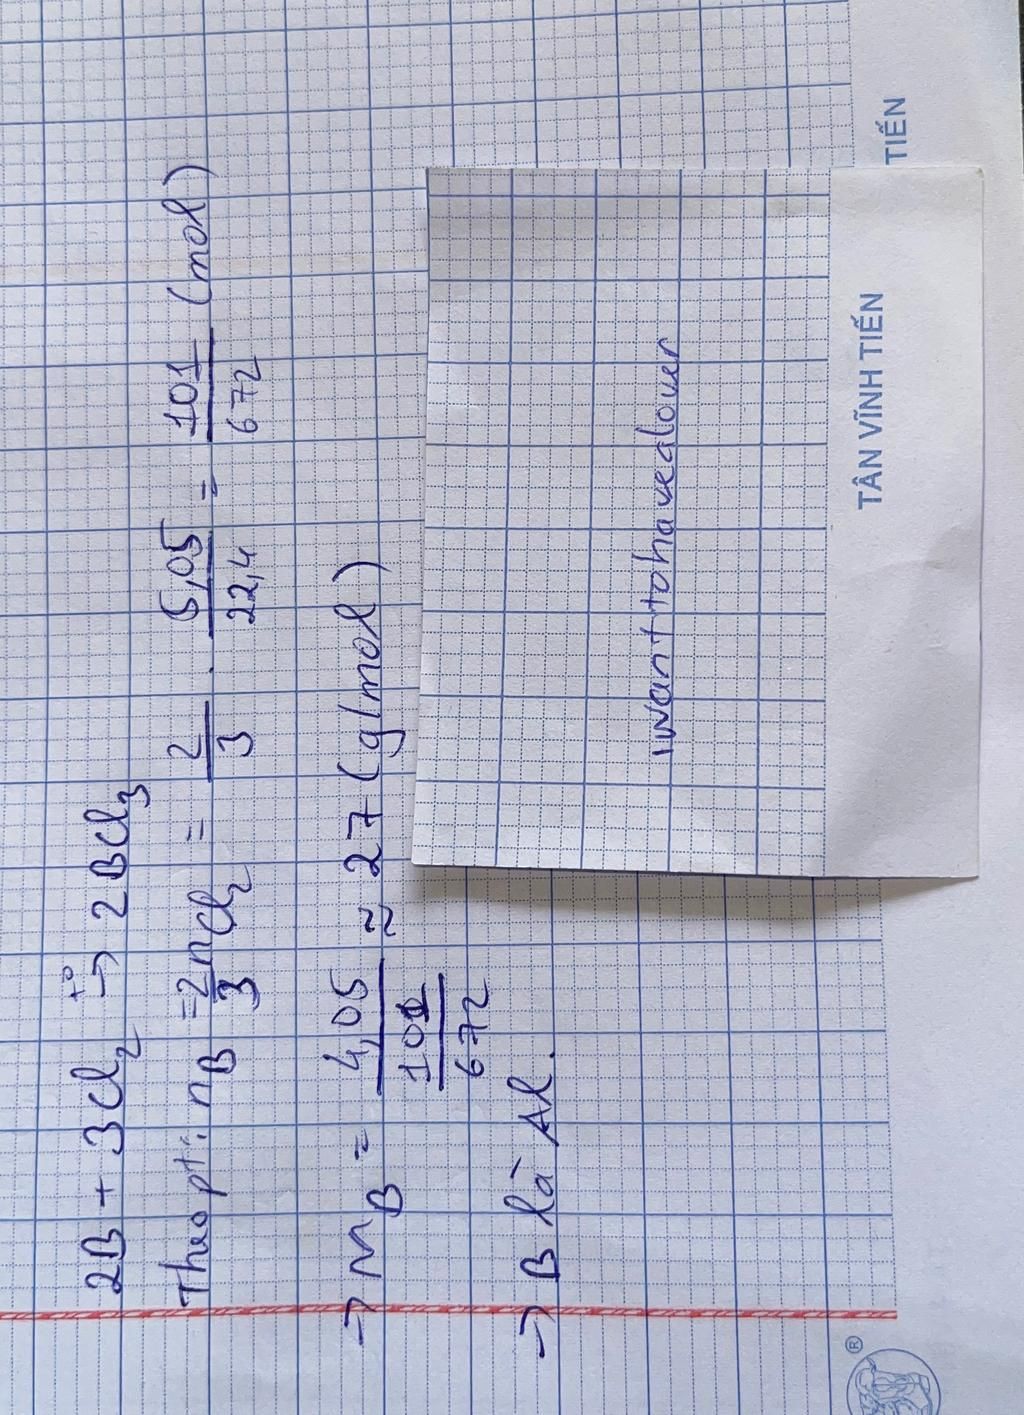 2B + 3Cl₂ →(t°) 2BCl₃
Theo pt: n_B = 2nCl₂/3 = 2/3 . 5,05/22,4 = 101/672 (mol)
→ M_B = 4,05/(101/672) ≈ 27 (g/mol)
→ B là Al.
iwanttohavealover
TÂN VĨNH TIẾN
TIẾN
®